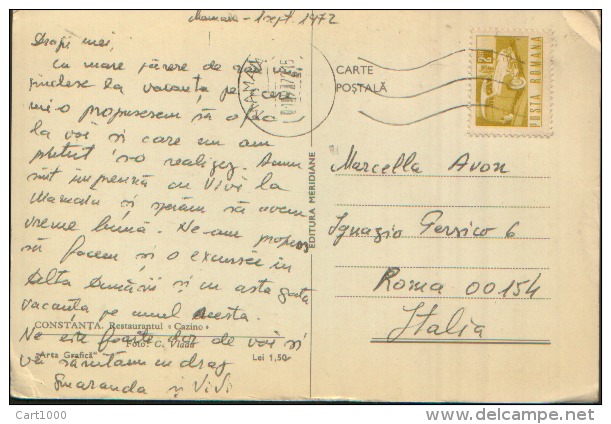 Mamaia - 1 sept. 1972
Dragii mei,
Cu mare părere de rău
gîndesc la vacanța pe care
mi-o propusesem să o fac
la voi și care nu am
putut s-o realizez. Acum
sînt împreună cu Vivi la
Mamaia și sperăm să avem
vreme bună. Ne-am propus
să facem și o excursie în
Delta Dunării și cu asta gata
vacanța pe anul acesta.
Ne este foarte dor de voi și
vă sărutăm cu drag
Smaranda și Vivi
CONSTANȚA. Restaurantul «Cazino»
Foto: C. Vladu
"Arta Grafică"
Lei 1,50
EDITURA MERIDIANE
MAMAIA
CARTE
POȘTALĂ
POSTA ROMANA
Marcella Avon
Ignazio Persico 6
Roma 00154
Italia
Cart1000
www.delcampe.net